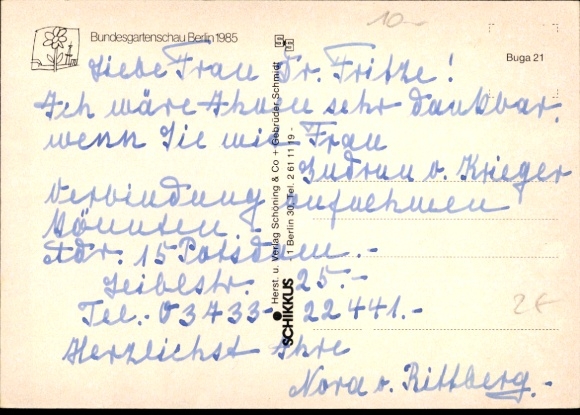 Bundesgartenschau Berlin 1985
10.-
Buga 21
Liebe Frau Dr. Fritze!
Ich wäre Ihnen sehr dankbar,
wenn Sie mit Frau
Gudrun v. Krieger
Verbindung aufnehmen
könnten.
Adr. 15 Potsdam.-
25.-
Tel.- 03733- 22441.-
Herzlichst Ihre
Nora v. Rittberg.-
2€
SCHIKKUS Herst. u. Verlag Schöning & Co + Gebrüder Schmidt
1 Berlin 30, Tel. 2 61 11 19 -